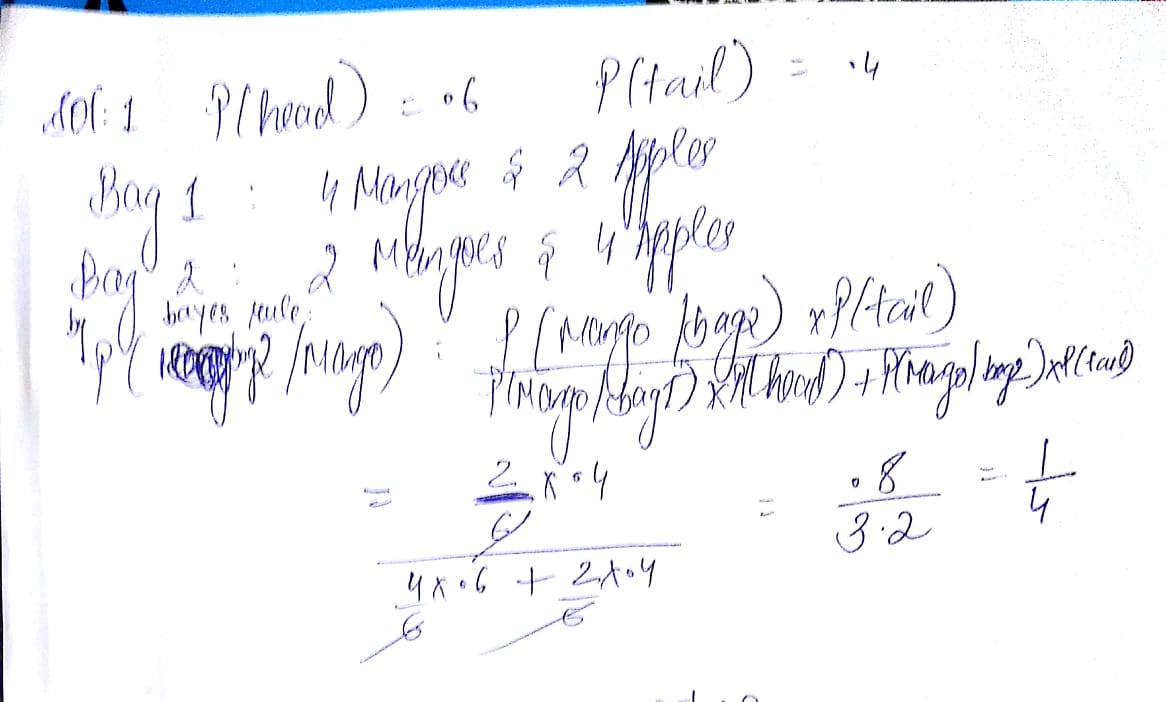 Sol: 1 P(head) = .6 P(tail) = .4
Bag 1 : 4 Mangoes & 2 Apples
Bag 2 : 2 Mangoes & 4 Apples
by bayes rule:
P( bag2 /Mango) : P(Mango /bag2) x P(tail)
P(Mango/bag1) x P(head) + P(Mango/bag2) x P(tail)
= 2/6 x .4 = .8/3.2 = 1/4
4/6 x .6 + 2/6 x .4